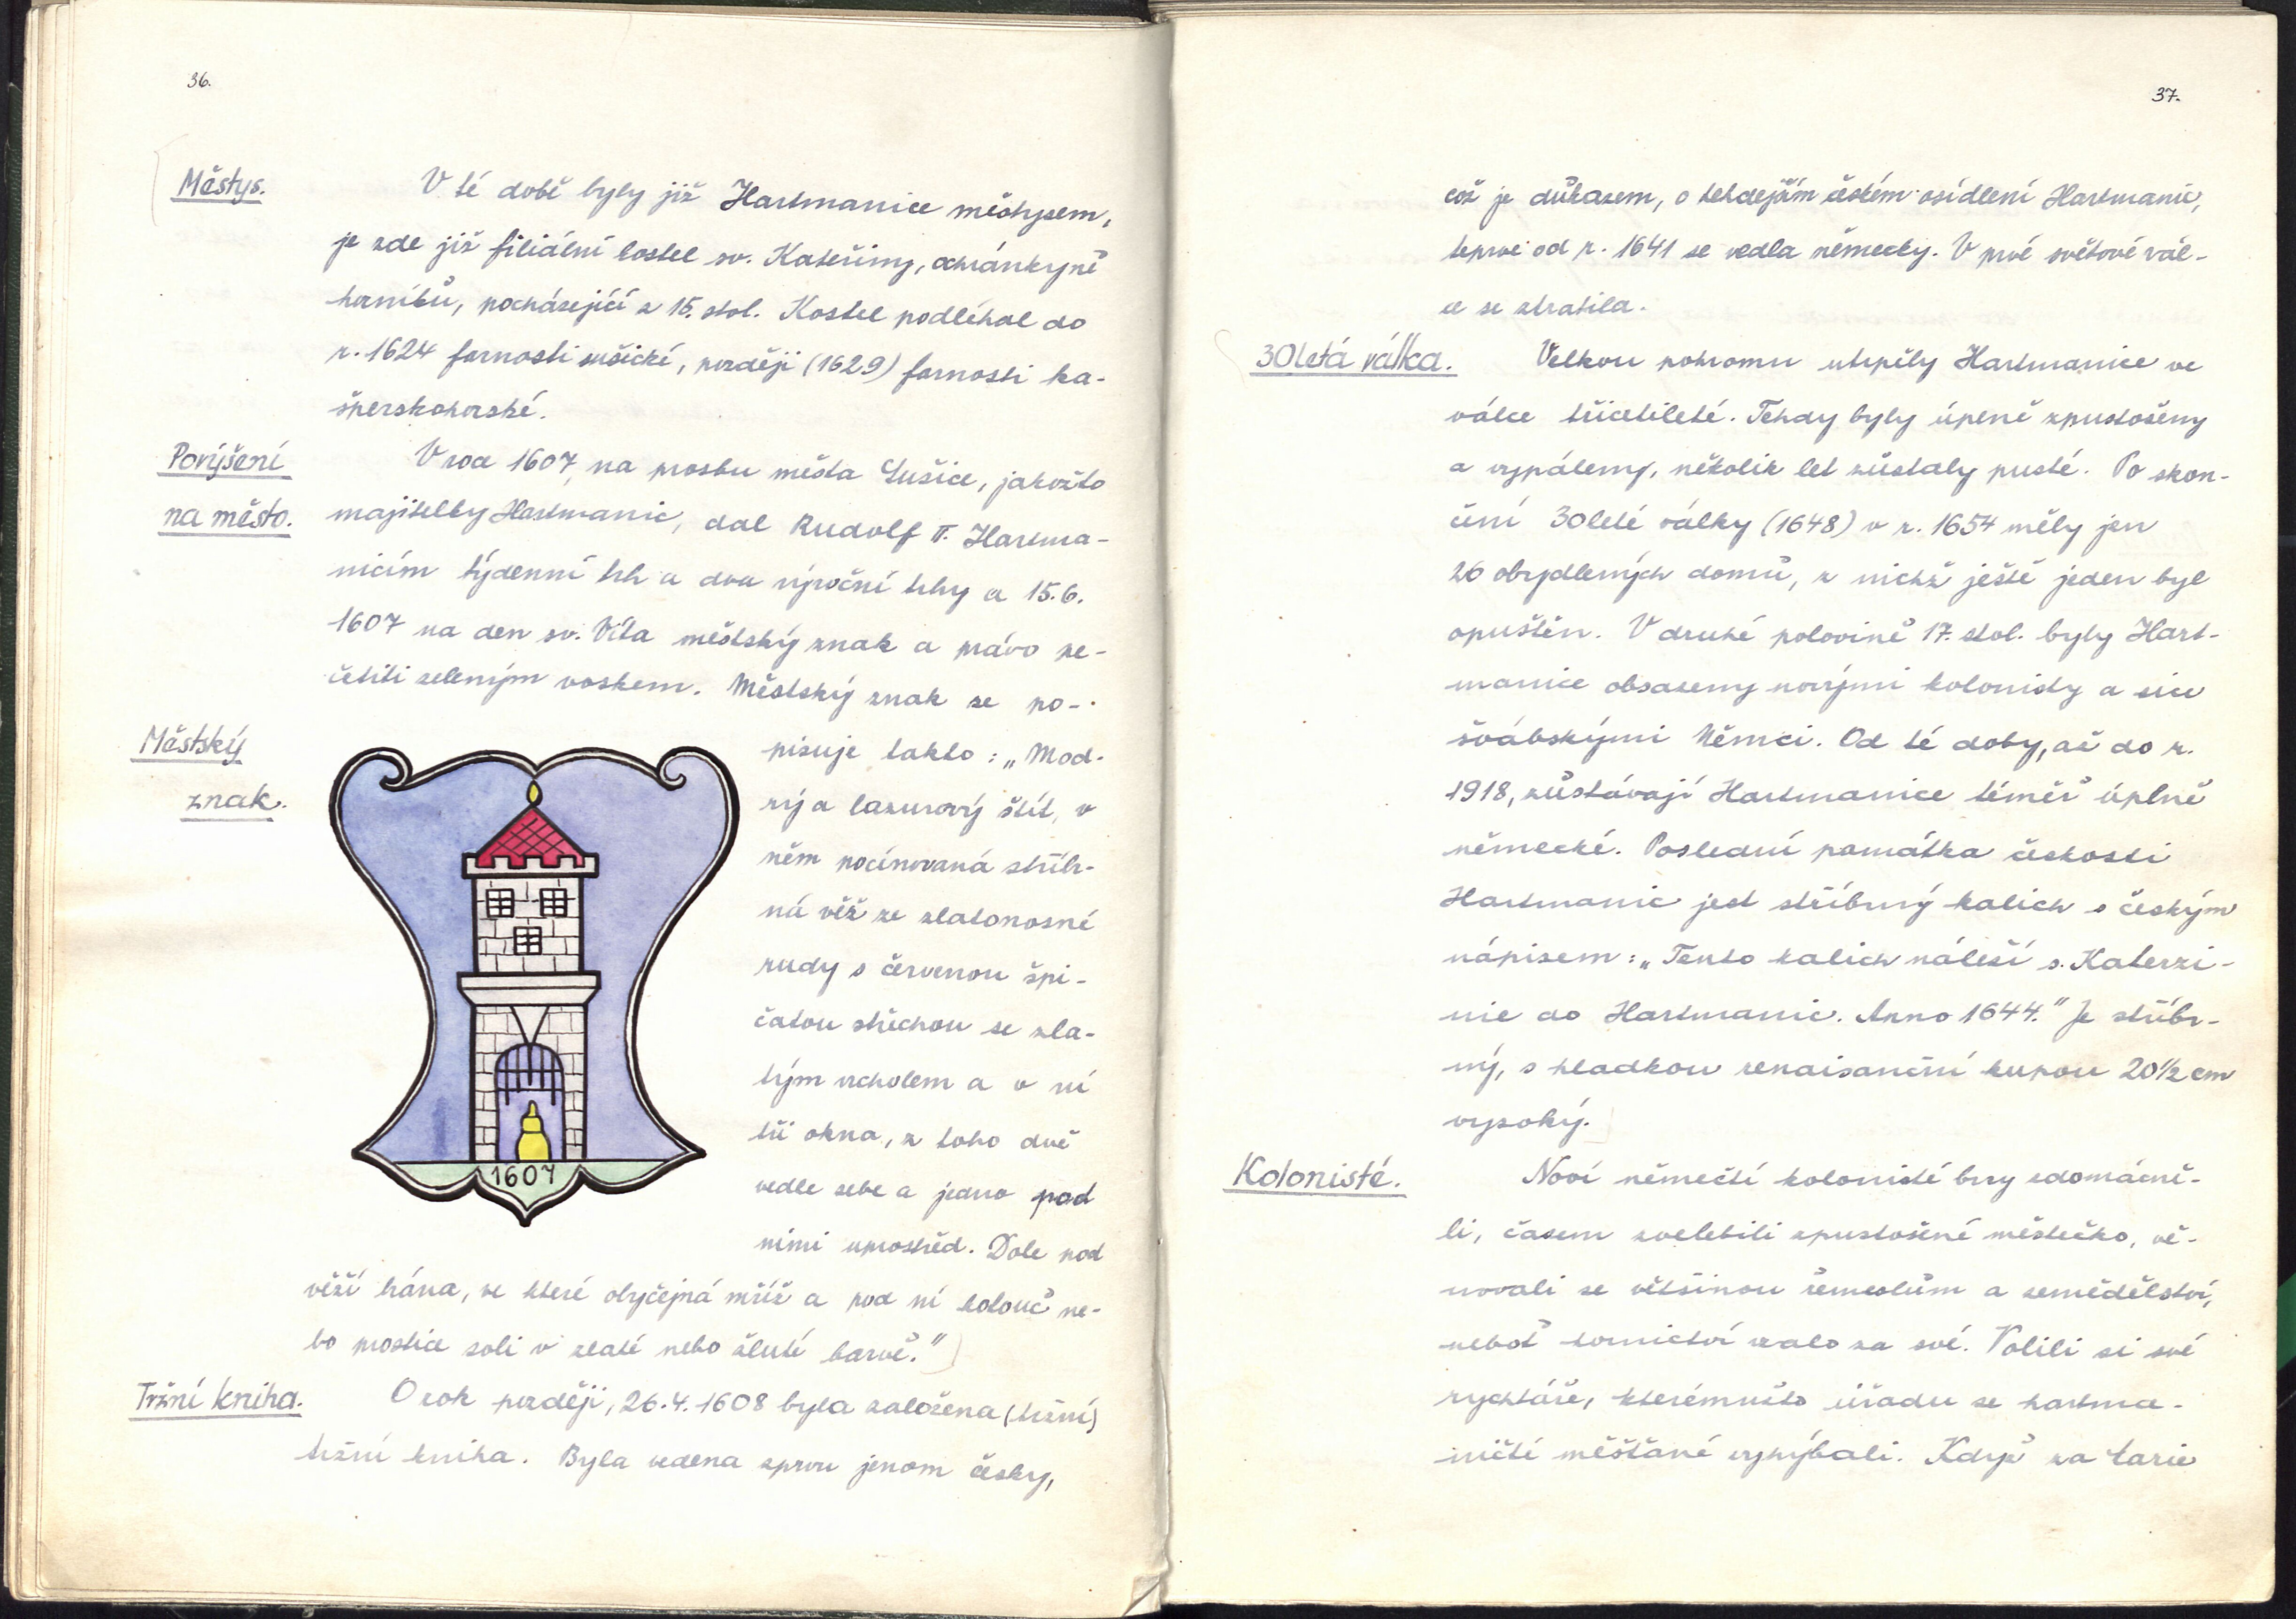 36.
Městys.
V té době byly již Hartmanice městysem,
je zde již filiální kostel sv. Kateřiny, ochránkyně
horníků, pocházející z 15. stol. Kostel podléhal do
r. 1624 farnosti sušické, později (1629) farnosti ka-
šperskohorské.
Povýšení
na město.
V roce 1607, na prosbu města Sušice, jakožto
majitelky Hartmanic, dal Rudolf II. Hartma-
nicím týdenní trh a dva výroční trhy a 15.6.
1607 na den sv. Víta městský znak a právo pe-
četiti zeleným voskem. Městský znak se po-
Městský
znak.
pisuje takto: „Mod-
rý a lazurový štít, v
něm pocínovaná stříbr-
ná věž ze zlatonosné
rudy s červenou špi-
čatou střechou se zla-
tým vrcholem a v ní
tři okna, z toho dvě
vedle sebe a jedno pod
nimi uprostřed. Dole pod
věží brána, ve které obyčejná mříž a pod ní kotouč ne-
bo prostice soli v zlaté nebo žluté barvě."
1607
Tržní kniha.
O rok později, 26.4.1608 byla založena (tržní)
tržní kniha. Byla vedena zprvu jenom česky,
37.
což je důkazem, o tehdejším českém osídlení Hartmanic,
teprve od r. 1641 se vedla německy. V prvé světové vál-
ce se ztratila.
30letá válka.
Velkou pohromu utrpěly Hartmanice ve
válce třicetileté. Tehdy byly úplně zpustošeny
a vypáleny, několik let zůstaly pusté. Po skon-
čení 30leté války (1648) v r. 1654 měly jen
26 obydlených domů, z nichž ještě jeden byl
opuštěn. V druhé polovině 17. stol. byly Hart-
manice obsazeny novými kolonisty a sice
švábskými Němci. Od té doby, až do r.
1918, zůstávají Hartmanice téměř úplně
německé. Poslední památka českosti
Hartmanic jest stříbrný kalich s českým
nápisem: „Tento kalich náleží s. Katerzi-
nie do Hartmanic. Anno 1644." Je stříbr-
ný, s hladkou renaisanční kupou 20½ cm
vysoký.
Kolonisté.
Noví němečtí kolonisté brzy zdomácně-
li, časem zvelebili zpustošené městečko, vě-
novali se většinou řemeslům a zemědělství,
neboť hornictví vzalo za své. Volili si své
rychtáře, kterémužto úřadu se hartma-
ničtí měšťané vyhýbali. Když za Marie